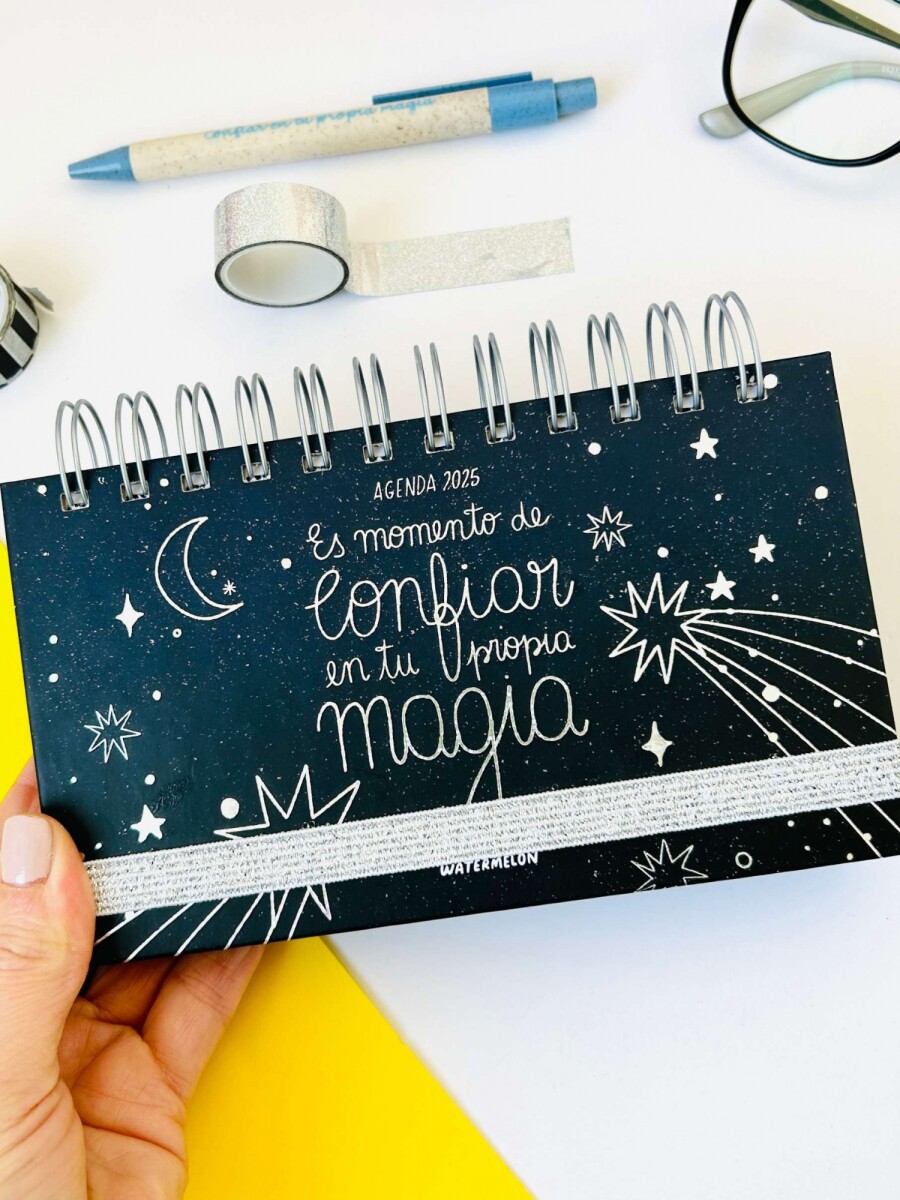 Confiar en tu propia magia
AGENDA 2025
Es momento de
Confiar
en tu propia
magia
WATERMELON